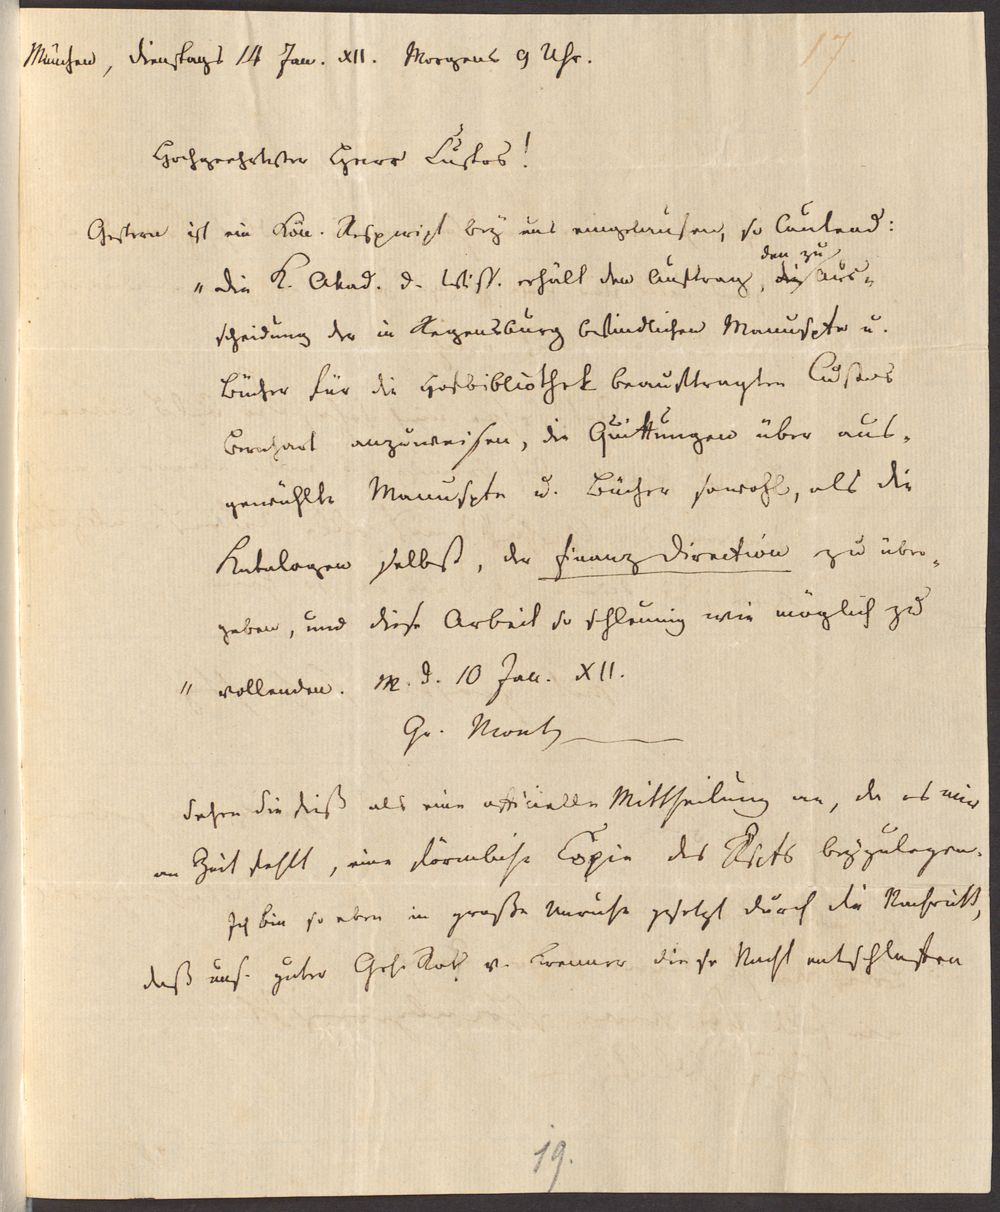 17.
München, Dienstags 14 Jan. XII. Morgens 9 Uhr.
Hochgeehrtester Herr Custos!
Gestern ist ein Kön. Rescript bey uns eingelaufen, so lautend:
" Die K. Akad. d. Wiss. erhält den Auftrag, den zu Aus-
scheidung der in Regensburg befindlichen Manuscpte u.
Bücher für die Hofbibliothek beauftragten Custos
Bernhart anzuweisen, die Quittungen über aus-
gewählte Manuscpte u. Bücher sowohl, als die
Katalogen selbst, der Finanz Direction zu über-
geben, und diese Arbeit so schleunig wie möglich zu
" vollenden. M. d. 10 Jan. XII.
Gr. Montg
Sehen Sie dieß als eine officielle Mittheilung an, da es mir
an Zeit fehlt, eine förmliche Copie des Rscpts beyzulegen.
Ich bin so eben in große Unruhe gesetzt durch die Nachricht,
daß uns. guter Geh. Rath v. Krenner diese Nacht entschlaffen
19.